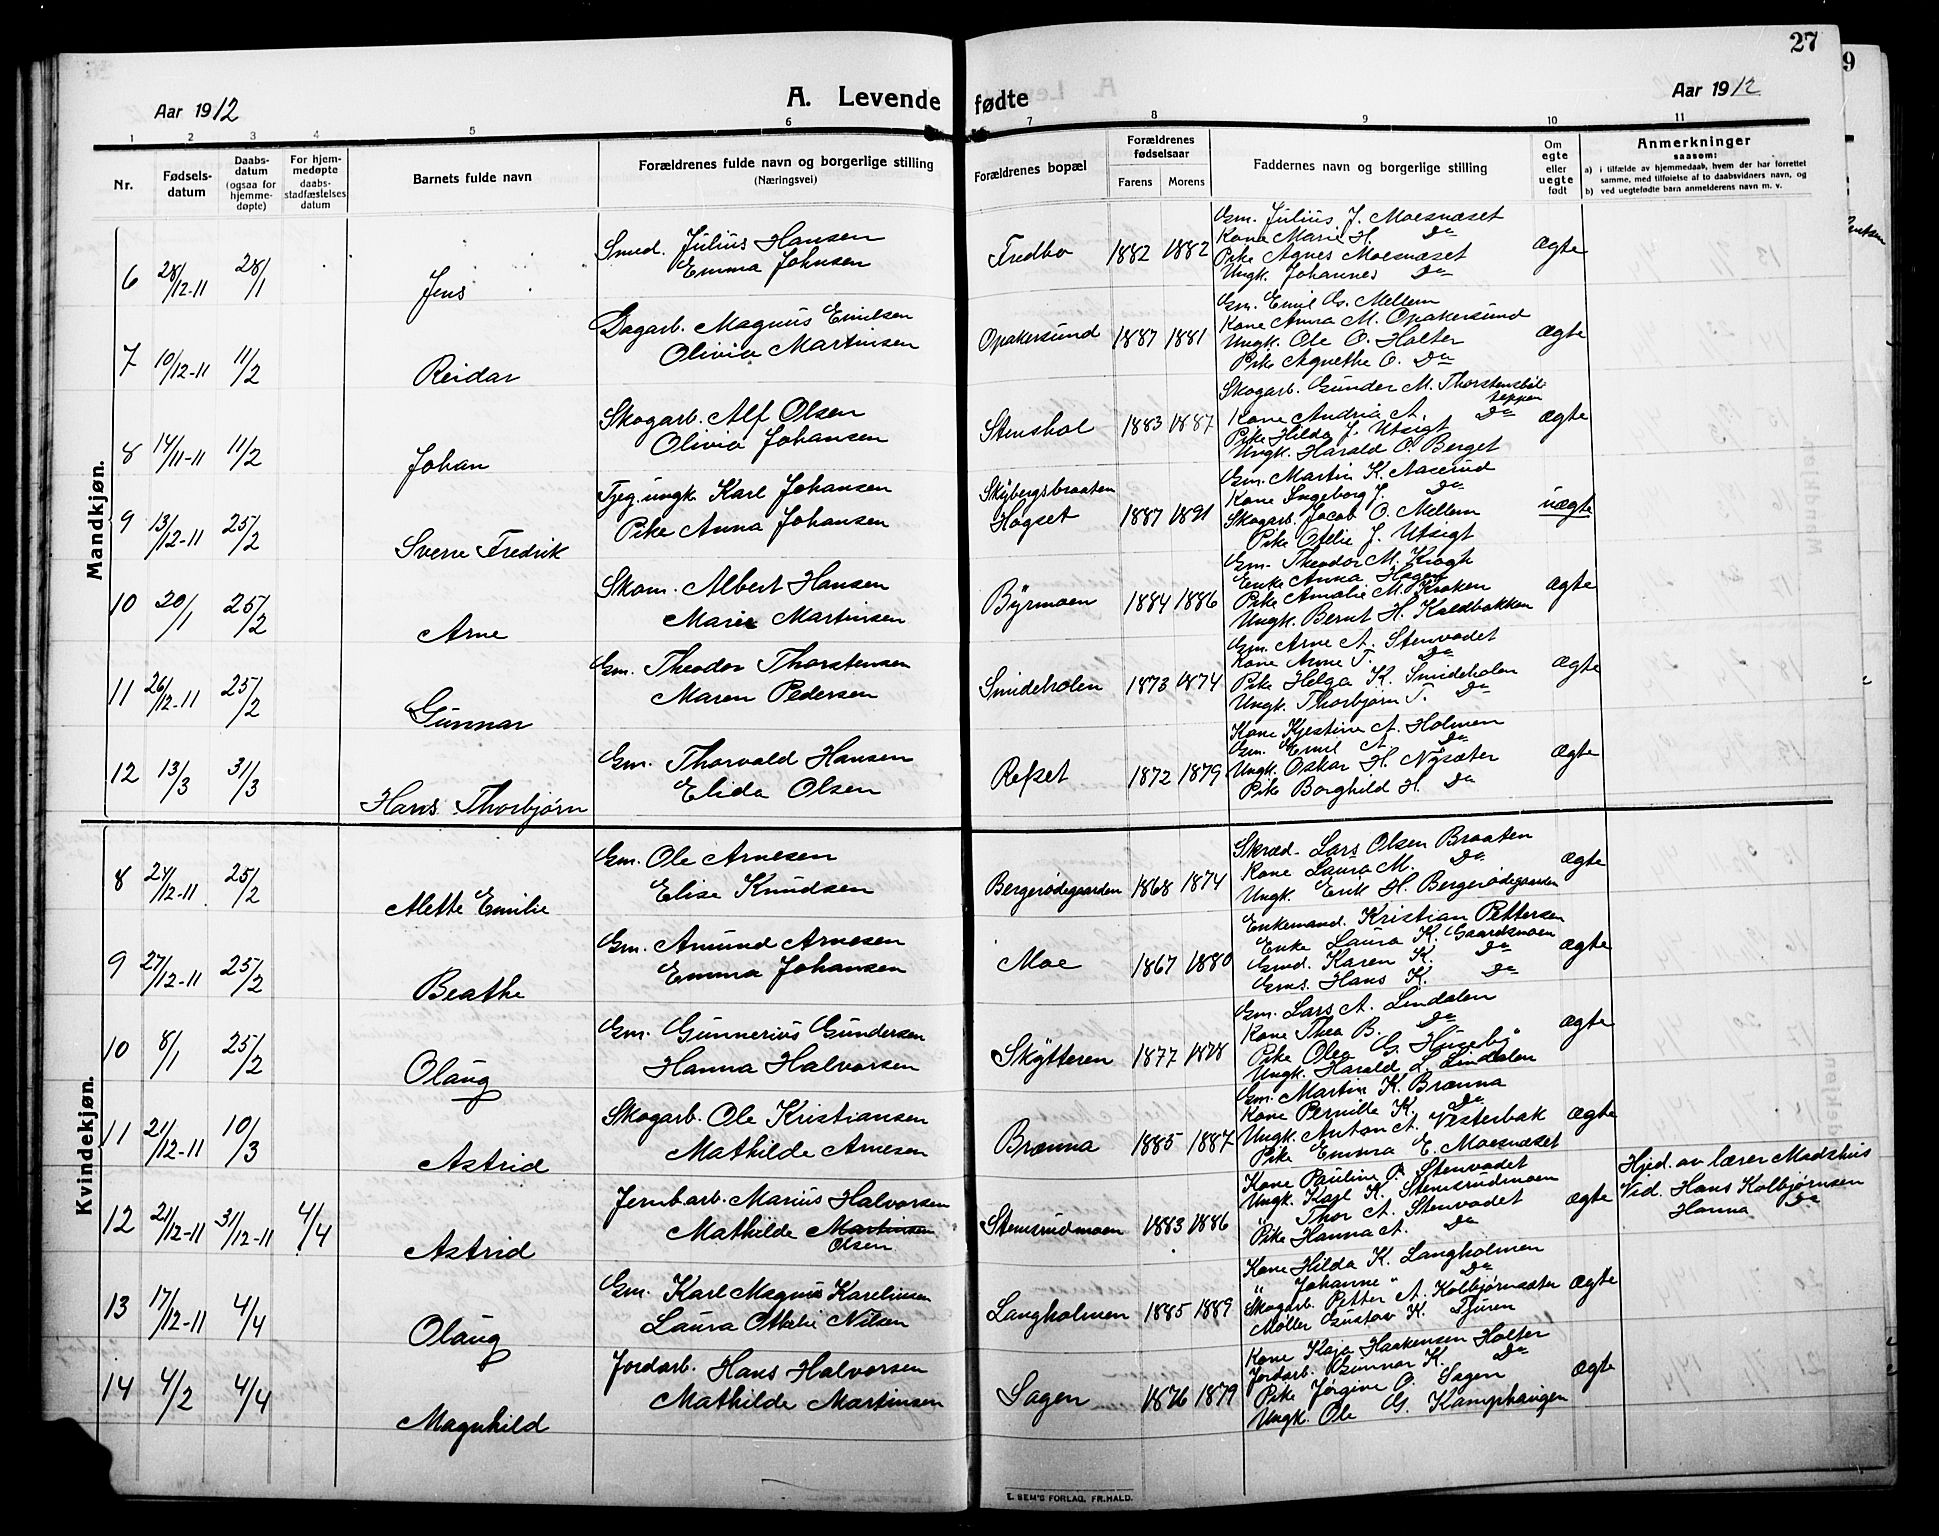 27
Aar 1912
A. Levende fødte
Aar 1912
1 2 3 4 5 6 7 8 9 10 11
Nr.
Fødsels-
datum
Daabs-
datum
(ogsaa for
hjemme-
døpte)
For hjem-
medøpte
daabs-
stadfæstelses
datum
Barnets fulde navn
Forældrenes fulde navn og borgerlige stilling
(Næringsvei)
Forældrenes bopæl
Forældrenes
fødselsaar
Farens Morens
Faddernes navn og borgerlige stilling
Om
egte
eller
uegte
født
Anmerkninger
saasom:
a) i tilfælde av hjemmedaab, hvem der har forrettet
samme, med tilføielse af to daabsvidners navn, og
b) ved uegtefødte barn anmelderens navn m. v.
Mandkjøn.
6 28/12-11 28/1 Jens
Smed. Julius Hansen
Emma Johnsen
Fredbo 1882 1882
Gm. Julius J. Moesnæset
Kone Marie H. Do
Pike Agnes Moesnæset
Ungk. Johannes Do
Ægte
7 10/12-11 11/2 Reidar
Dagarb. Magnus Emilsen
Olivia Martinsen
Opakersund 1887 1881
Gm. Emil Os. Mellem
Kone Anna M. Opakersund
Ungk. Ole O. Holter
Pike Agnethe O. Do
Ægte
8 14/11-11 11/2 Johan
Skogarb. Alf Olsen
Olivia Johansen
Stenshol 1883 1887
Skogarb. Gunder M. Thorstensbøl-
teppen
Kone Andria A. Do
Pike Hilda J. Utsigt
Ungk. Harald O. Berget
Ægte
9 13/12-11 25/2 Sverre Fredrik
Tjeg. ungk. Karl Johansen
Pike Anna Johansen
Skybergsbraaten
Høgset 1887 1891
Gm. Martin K. Aaserud
Kone Ingeborg J. Do
Skogarb. Jacob O. Mellem
Pike Otelie J. Utsigt
uægte
10 20/1 25/2 Arne
Skom. Albert Hansen
Marie Martinsen
Byrmoen 1884 1886
Gm. Theodor M. Krogh
Enke Anna Hagen
Pike Amalie M. Kroken
Ungk. Bernt H. Koldbakken
Ægte
11 26/12-11 25/2 Gunnar
Gm. Theodor Thorstensen
Maren Pedersen
Smideholen 1873 1874
Gm. Arne A. Stenvadet
Kone Anne T. Do
Pike Helga K. Smideholen
Ungk. Thorbjørn T. Do
Ægte
12 13/3 31/3 Hans Thorbjørn
Gm. Thorvald Hansen
Elida Olsen
Refset 1872 1879
Kone Kjestine A. Holmen
Gm. Emil A. Do
Ungk. Oskar H. Nysæter
Pike Borghild H. Do
Ægte
Kvindekjøn.
8 24/12-11 25/2 Alette Emilie
Gm. Ole Arnesen
Elise Knudsen
Bergerødegaarden 1868 1874
Skræd. Lars Olsen Braaten
Kone Laura M. Do
Ungk. Erik H. Bergerødegaarden
Ægte
9 27/12-11 25/2 Beathe
Gm. Amund Arnesen
Emma Johansen
Moe 1867 1880
Enkemand. Kristian Pettersen
Enke Laura K. Gaardsmoen
Gmd. Karen K. Do
Gms. Hans K. Do
Ægte
10 8/1 25/2 Olaug
Gm. Gunnerius Gundersen
Hanna Halvorsen
Skytteren 1877 1878
Gm. Lars A. Lindalen
Kone Thea B. Do
Pike Olea G. Huseby
Ungk. Harald L. Lindalen
Ægte
11 21/12-11 10/3 Astrid
Skogarb. Ole Kristiansen
Mathilde Arnesen
Brænna 1885 1887
Gm. Martin K. Brænna
Kone Pernille K. Do
Ungk. Anton A. Vesterbak
Pike Emma E. Moesnæset
Ægte
12 21/12-11 31/12-11 4/4 Astrid
Jernbarb. Marius Halvorsen
Mathilde Martinsen
Olsen
Stensrudmoen 1883 1886
Kone Pauline P. Stenvadet
Ungk. Karl K. Stensrudmoen
" Thor A. Stenvadet
Pike Hanna A. Do
Ægte
Hjed. av lærer Madshus
Vid. Hans Kolbjørnsen
Hanna Do
13 17/12-11 4/4 Olaug
Gm. Karl Magnus Karelinsen
Laura Othilie Nilsen
Langholmen 1885 1889
Kone Hilda K. Langholmen
" Johanne " Do
Skogarb. Petter A. Kolbjørnsæter
Møller Gustav K. Tjuren
Ægte
14 4/2 4/4 Magnhild
Jordarb. Hans Halvorsen
Mathilde Martinsen
Sagen 1876 1879
Kone Kaja Haakensen Holter
Jordarb. Gunnar K. Do
Pike Jørgine O. Sagen
Ungk. Ole G. Kamphaugen
Ægte
E. SEM'S FORLAG, FR.HALD.